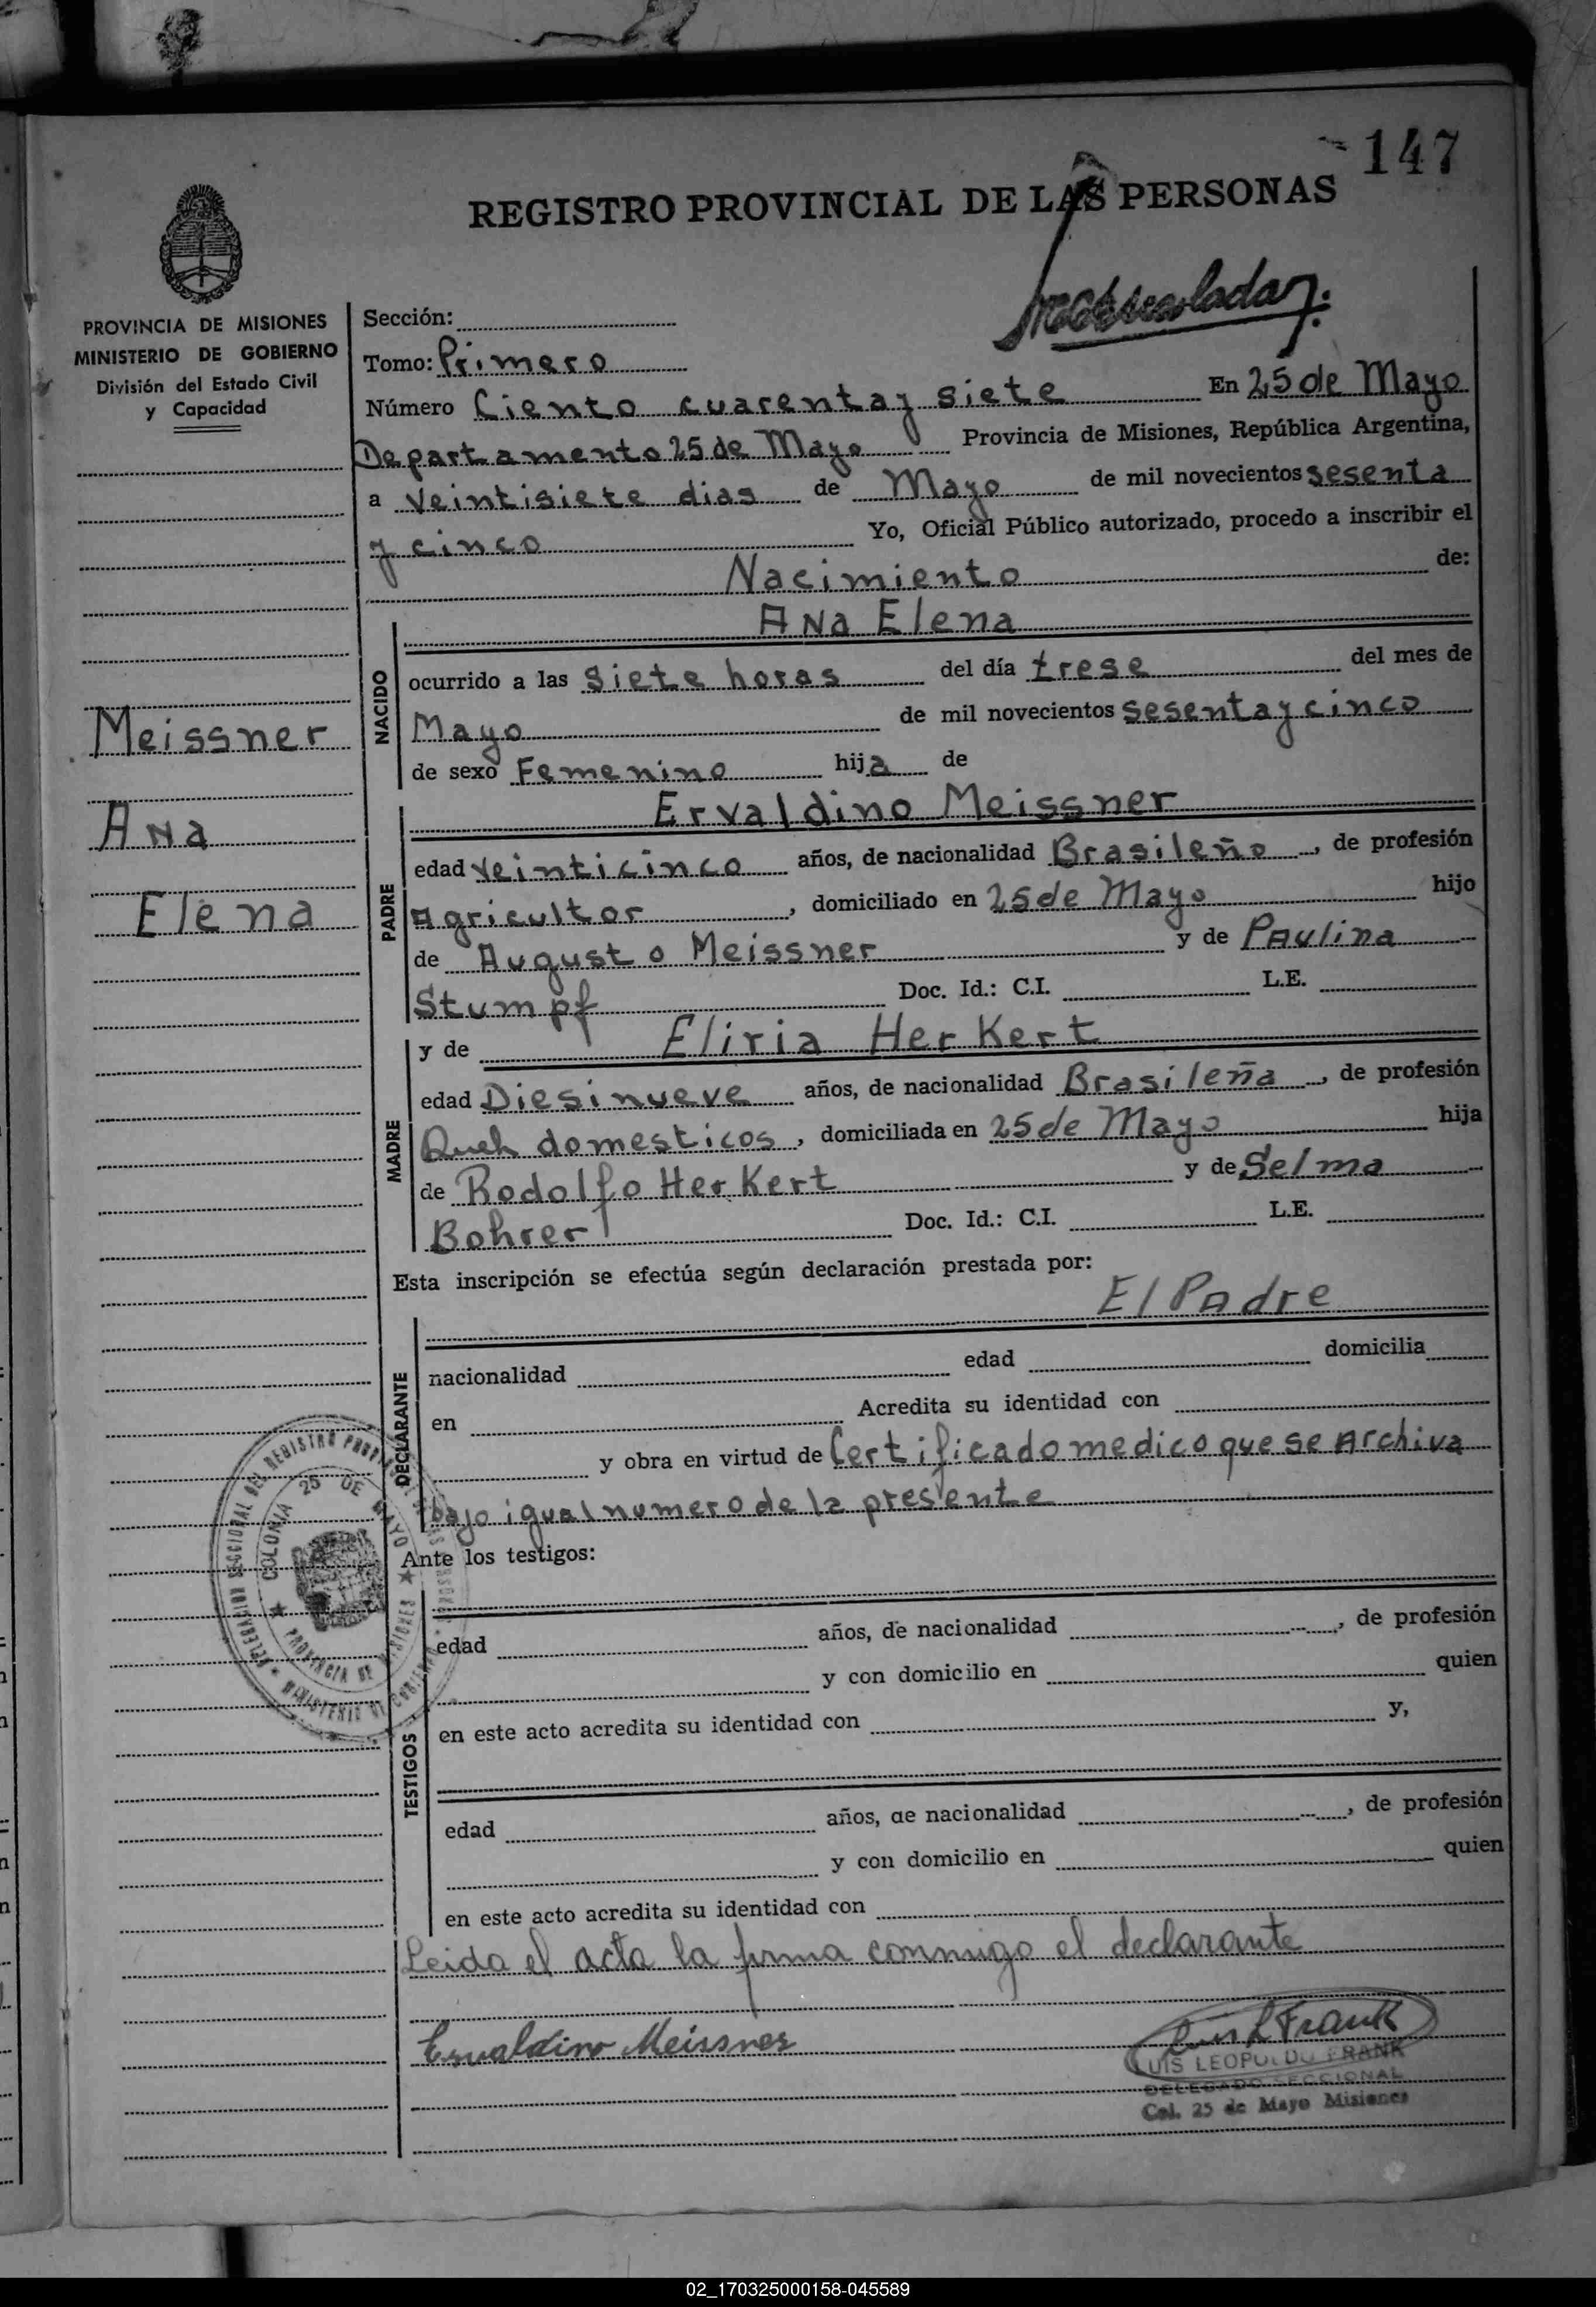 147
REGISTRO PROVINCIAL DE LAS PERSONAS
PROVINCIA DE MISIONES
MINISTERIO DE GOBIERNO
División del Estado Civil
y Capacidad
Meissner
Ana
Elena
Sección:
Tomo: Primero
Número Ciento cuarenta y siete En 25 de Mayo
Departamento 25 de Mayo Provincia de Misiones, República Argentina,
a veintisiete dias de Mayo de mil novecientos sesenta
y cinco Yo, Oficial Público autorizado, procedo a inscribir el
Nacimiento de:
Ana Elena
NACIDO
ocurrido a las siete horas del día trese del mes de
Mayo de mil novecientos sesenta y cinco
de sexo Femenino hija de
Ervaldino Meissner
PADRE
edad veinticinco años, de nacionalidad Brasileño, de profesión
Agricultor, domiciliado en 25 de Mayo hijo
de Augusto Meissner y de Paulina
Stumpf Doc. Id.: C.I. L.E.
y de Eliria Herkert
MADRE
edad Diesinueve años, de nacionalidad Brasileña, de profesión
Queh domesticos, domiciliada en 25 de Mayo hija
de Rodolfo Herkert y de Selma
Bohrer Doc. Id.: C.I. L.E.
Esta inscripción se efectúa según declaración prestada por:
El Padre
DECLARANTE
nacionalidad edad domicilia
en Acredita su identidad con
y obra en virtud de Certificado medico que se Archiva
bajo igual numero de la presente
Ante los testigos:
TESTIGOS
edad años, de nacionalidad , de profesión
y con domicilio en quien
en este acto acredita su identidad con y,
edad años, de nacionalidad , de profesión
y con domicilio en quien
en este acto acredita su identidad con
Leida el acta la firma conmigo el declarante
Ervaldino Meissner
Luis L Frank
LUIS LEOPOLDO FRANK
DELEGADO SECCIONAL
Col. 25 de Mayo Misiones
DELEGACION SECCIONAL DEL REGISTRO
COLONIA 25 DE MAYO
PROVINCIA DE MISIONES
02_170325000158-045589